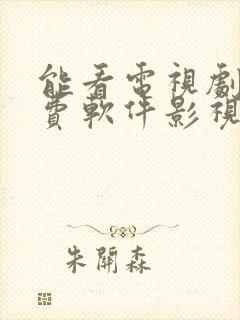 能看電視劇
費軟件影視
朱開森